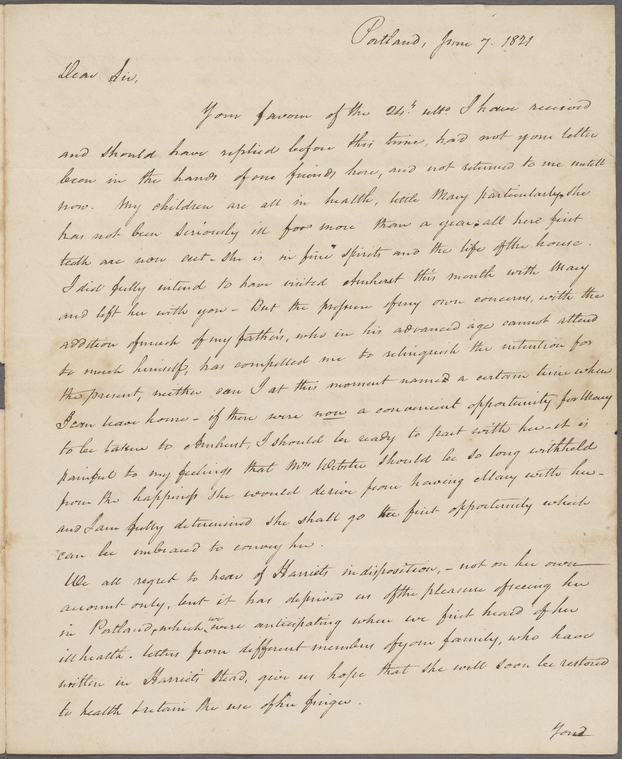 Portland, June 7. 1821
Dear Sir,
Your favour of the 24th. ulto. I have received
and should have replied before this time, had not your letter
been in the hands of our friends here, and not returned to me untill
now. My children are all in health, little Mary particularly, she
has not been seriously ill for more than a year; all here first
teeth are now cut- she is in fine spirits and the life of the house.
I did fully intend to have visited Amherst this month with Mary
and left her with you - But the pressure of my own concerns, with the
addition of much of my father's, who in his advanced age cannot attend
to much himself, has compelled me to relinquish the intention for
the present, neither can I at this moment name a certain time when
I can leave home - if there were now a convenient opportunity for Mary
to be taken to Amherst, I should be ready to part with her - it is
painful to my feelings that Mrs Webster should be so long withheld
from the happiness she would derive from having Mary with her -
and I am fully determined she shall go the first opportunity which
can be embraced to convey her.
We all regret to hear of Harriets indisposition, - not on her own
account only, but it has deprived us of the pleasure of seeing her
in Portland, which we were anticipating when we first heard of her
ill health. letters from different members of your family, who have
written in Harriet's stead, give us hope that she will soon be restored
to health & retain the use of her finger.
Your